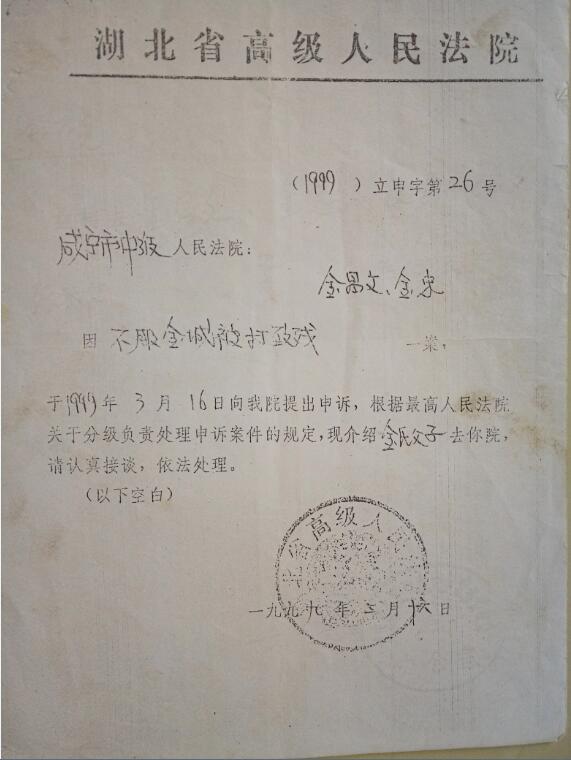 湖北省高级人民法院
（1999 ）立申字第26号
咸宁市中级人民法院：
金昌文、金忠
因 不服金城被打致残 一案，
于1999年 3 月 16日向我院提出申诉，根据最高人民法院
关于分级负责处理申诉案件的规定，现介绍金氏父子去你院，
请认真接谈，依法处理。
（以下空白）
省高级人民
一九九九年三月十六日